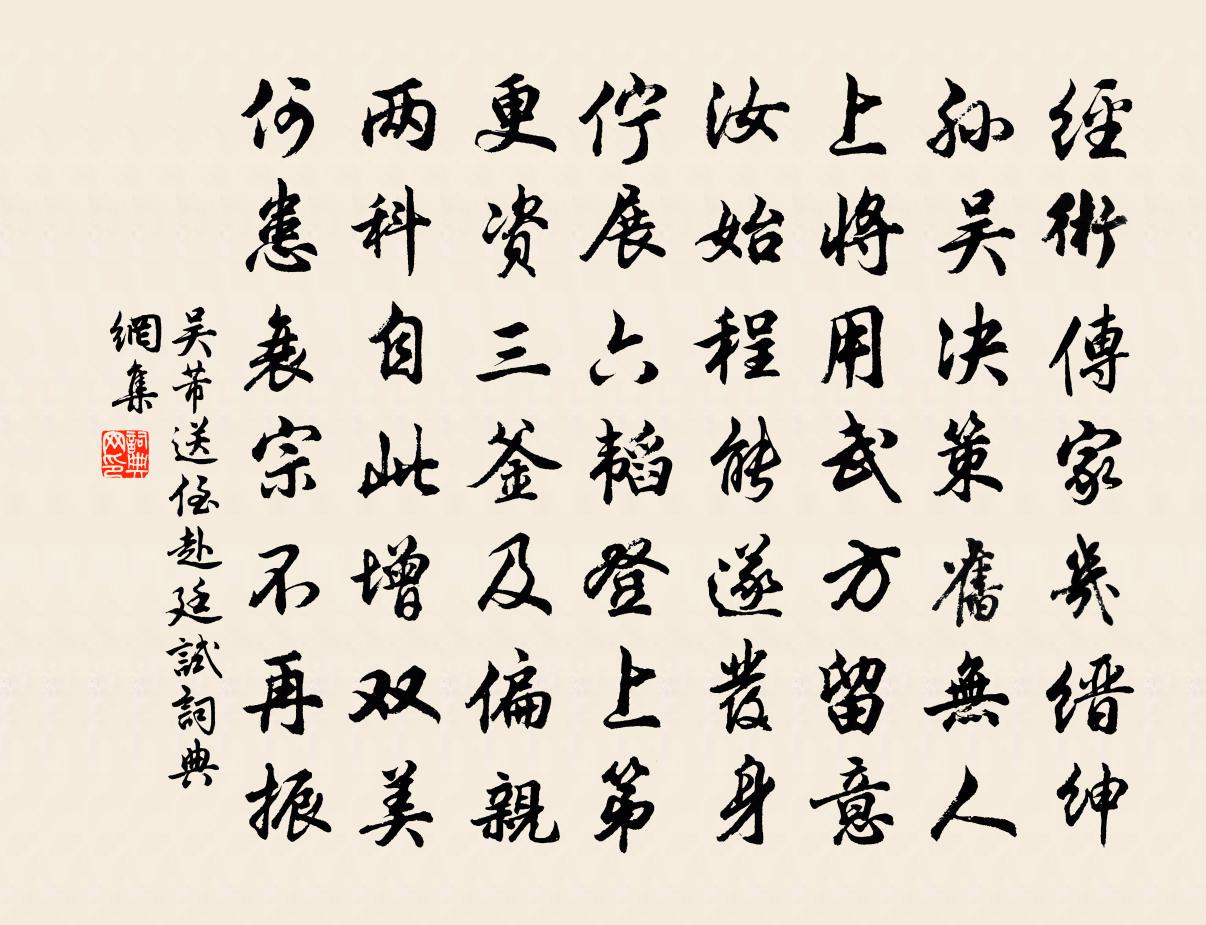 經術傳家幾缙紳
孙吴決策舊無人
上將用武方留意
汝始程能遂發身
佇展六韬登上第
更资三釜及偏親
两科自此增双美
何患衰宗不再振
吴芾送侄赴廷試詞典
網集
詞典
网印